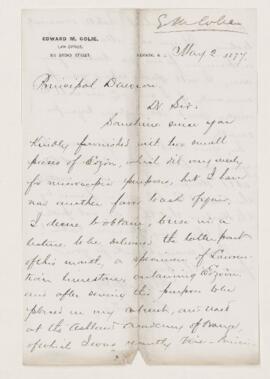 E M Colie
EDWARD M. COLIE,
LAW OFFICE,
BROAD STREET.
NEWARK, N. May 2 1877
Principal Dawson
Dr Sir.
Sometime since you
kindly furnished with two small
pieces of Eozön, which did very nicely
for microscopic purposes, but I have
now another favor to ask of you.
I desire to obtain, to use in a
lecture to be delivered the latter part
of this month, a specimen of Lauren-
tian limestone containing Eozön
and after serving this purpose to be
placed in my cabinet, and used
at the Academy of
of which I was recently